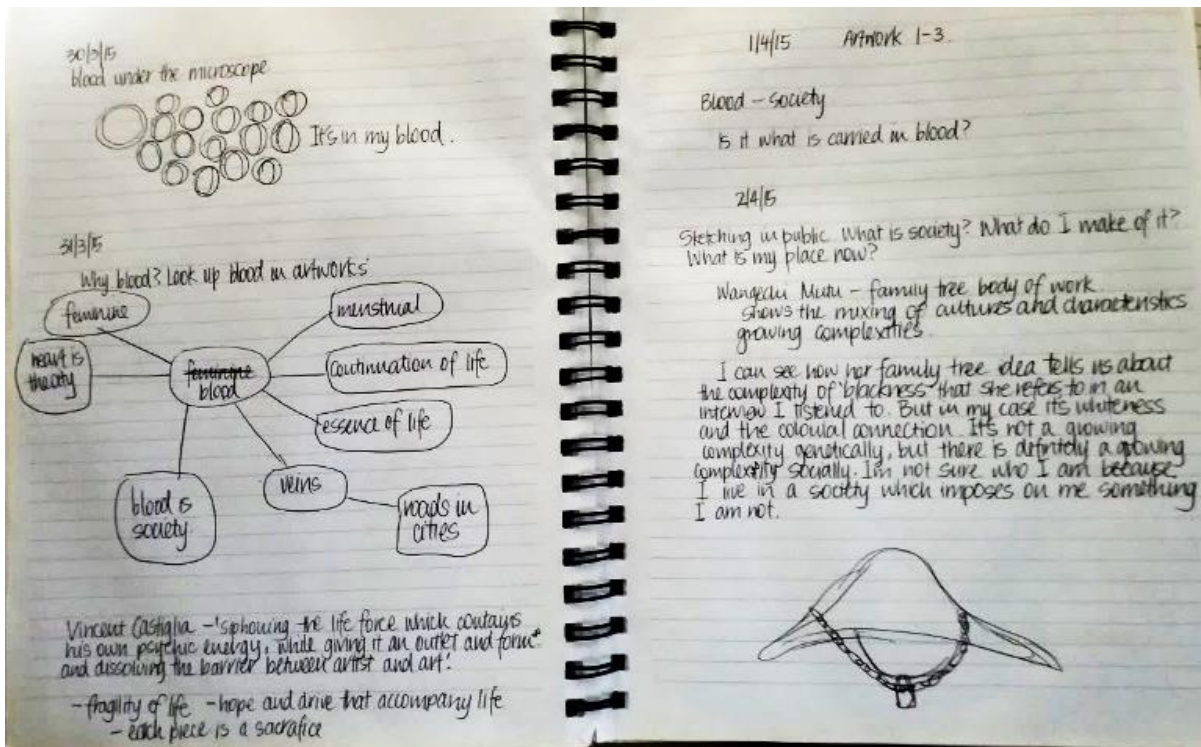 30/3/15
blood under the microscope
It's in my blood.
31/3/15
Why blood? Look up blood in artworks
feminine
menstrual
heart is
the city
feminine
blood
continuation of life
essence of life
veins
blood is
society
roads in
cities
Vincent Castiglia - 'siphoning the life force which contains
his own psychic energy, while giving it an outlet and form"
and dissolving the barrier between artist and art'.
- fragility of life - hope and drive that accompany life
- each piece is a sacrafice
1/4/15 Artwork 1-3.
Blood - society
Is it what is carried in blood?
2/4/15
Sketching in public. What is society? What do I make of it?
What is my place now?
Wangechi Mutu - family tree body of work.
shows the mixing of cultures and characteristics
growing complexities.
I can see how her family tree idea tells us about
the complexity of 'blackness' that she refers to in an
interview I listened to. But in my case its whiteness
and the colonial connection. It's not a growing
complexity genetically, but there is definitely a growing
complexity socially. Im not sure who I am because
I live in a society which imposes on me something
I am not.